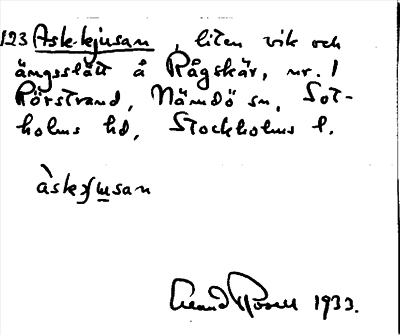 123 Aske-kjusan, liten vik och
ängsslätt å Rågskär, nr. 1
Rörstrand, Nämdö sn, Sot-
holms hd, Stockholms l.
àske
1933.